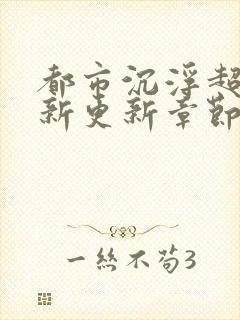 都市沉浮超
新更新章節
一絲不苟3